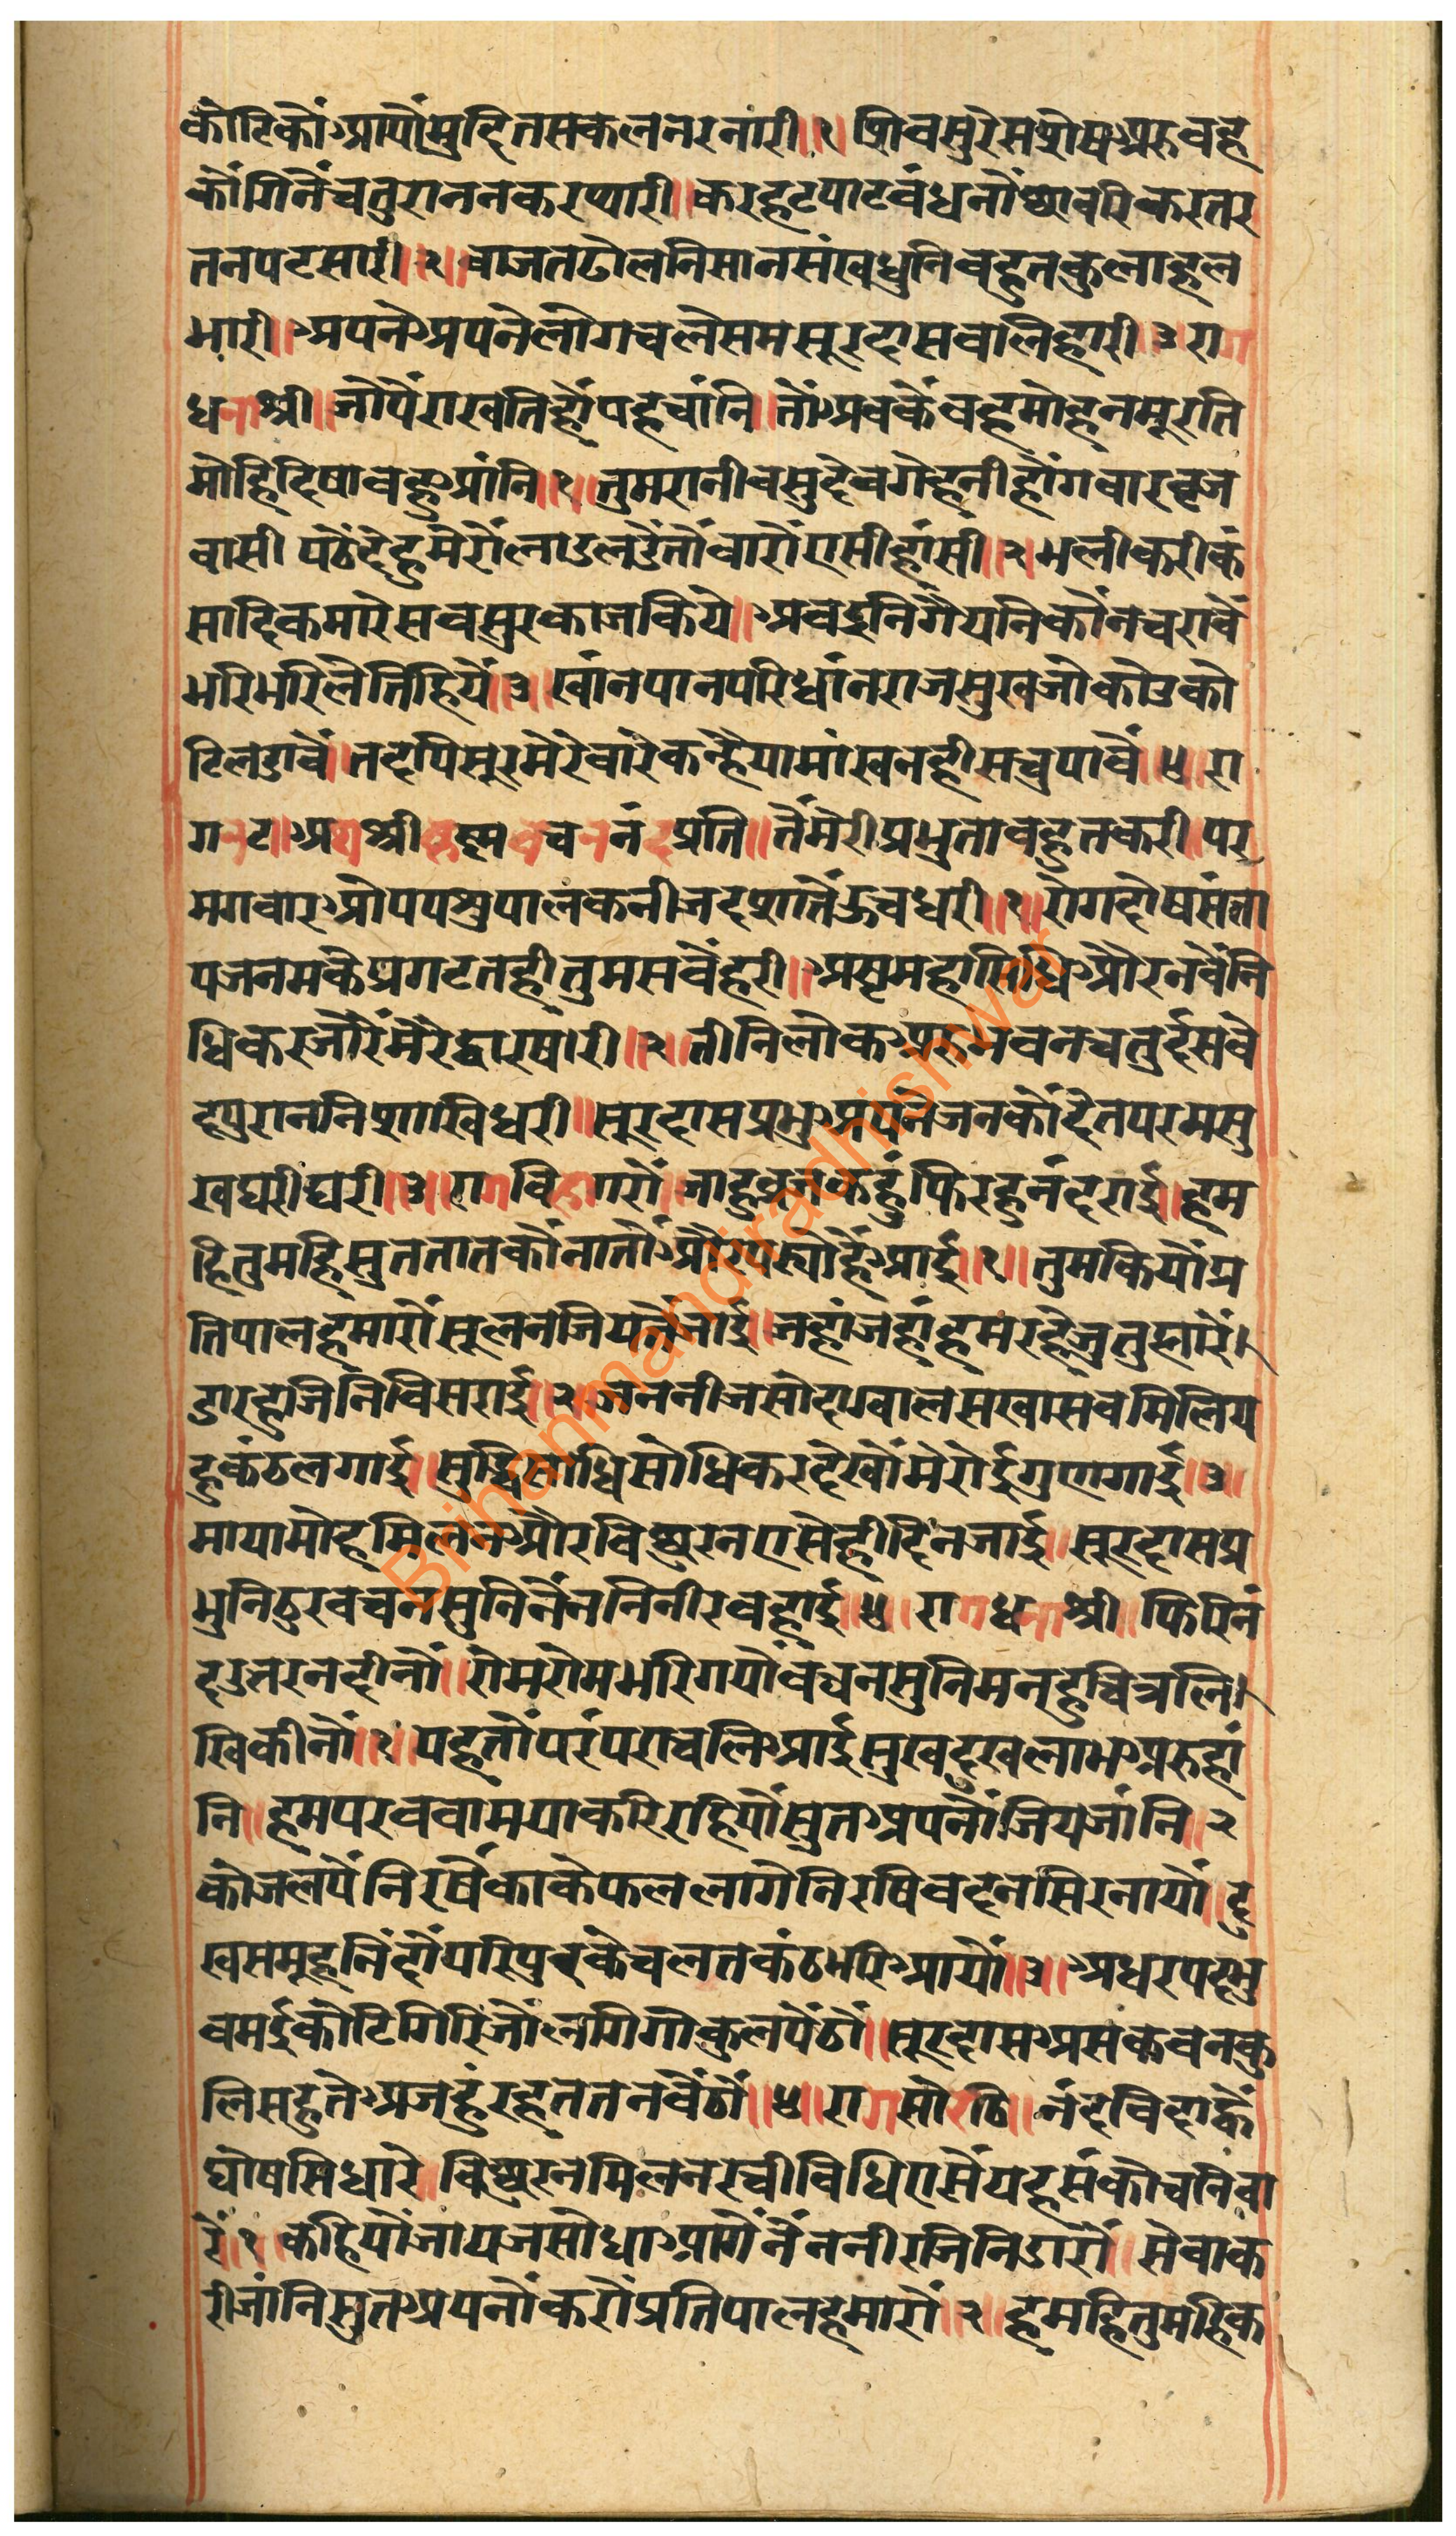 कोटिकौंआयौंमुदितसकलनरनारी॥१॥शिवसुरेसशेषअरुवहु
कोंगिनेंचतुराननकरप्यारी॥करहटपाटवंधनौंछावरिकरतर
तनपटसारी॥२॥वाजतढोलनिसानसंखधुनिवहुतकुलाहल
भारी॥अपनेअपनेलोगचलेसमसूरदासवलिहारी॥३॥रा
धनाश्री॥जोपैंराखतिहौंपहचांनि॥तौंअवकेंवहमोहनमूरति
मोहिदिषावहुआंनि॥१॥तुमरानीवसुदेवगेहनीहौंगवारवृज
वासी पठैंदेहुमेरोंलाडलडैंतौंवारोंएसीहांसी॥२॥भलीकरीकं
सादिकमारेसवसुरकाजकिये॥अवइनिगैयनिकौंनचरावैं
भरिभरिलेतिहियें॥३॥खांनपानपरिधांनराजसुखजोकोउको
टिलडावैं॥तदपिसूरमेरेवारेकन्हैयामांखनहीसचुपावैं॥४॥रा
गनट॥अथश्रीकृष्णवचननंदप्रति॥तैंमेरीप्रभुतावहुतकरी॥पर
मगवारओपपशुपालकनीजदशातेंऊचधरी॥१॥रोगदोषसंता
पजनमकेप्रगटतहीतुमसवैंहरी॥अष्टमहासिधिऔरनवैंनि
धिकरजोरेंमेंरेद्वारषरी॥२॥तीनिलोकअरुभवनचतुर्दसवे
दपुराननिशाखिधरी॥सूरदासप्रभुअपनेजनकौंदेतपरमसु
खघरीघरी॥३॥रागविहागरों॥जाहुव्रजकहुंफिरहुनंदराई॥हम
हितुमहिसुततातकौनातौंऔरपरयौंहैंआई॥१॥तुमकियौंप्र
तिपालहमारौंसूलनजियतेंजाई॥जहांजहांहमरहेंजुतुम्हारें।
डारहुजिनिविसराई॥२॥जननीजसोदाग्वालसखासवमिलिय
हुकंठलगाई॥सुद्धिसोधिसोधिकरदेखौंमेरोईगुणगाई॥३॥
मायामोहमिलनऔरविछुरनएसेहीदिनजाई॥सूरदासप्र
भुनिठुरवचनसुनिनैंननिनीरवहाई॥४॥रागधनाश्री॥फिरिनं
दउतरनदीनौं॥रोमरोमभरिगयौंवचनसुनिमनहुचित्रलि।
खिकीनौं॥१॥पहतौंपरंपराचलिआईसुखदुखलाभअरुहां
नि॥हमपरववामयाकरिरहियौंसुतअपनौंजियजांनि॥२
कोजलपैंनिरषैंकाकेफललागेनिरषिवदनसिरनायौं॥दु
खसमूहनिंदौंपरिपुरकेचलतकंठभरिआयौं॥३॥अधरपदभु
वमईकोटिगिरिजौंलगिगोकुलपैंठौं॥सूरदासअसकवनकु
लिसहुतेअजहुंरहततनवैंठौं॥४॥रागसोरठि॥नंदविदाह्वैं
घोषसिधारे॥विछुरनमिलनरचीविधिएसेंयहसंकोचनिवा
रें॥१॥कहियौंजायजसोधाआगेंनैंननीरजिनिडारौं॥सेवाक
रीजांनिसुतअपनौंकरौंप्रतिपालहमारौं॥२॥हमहितुमहिक
Brihanmandiradhishwar